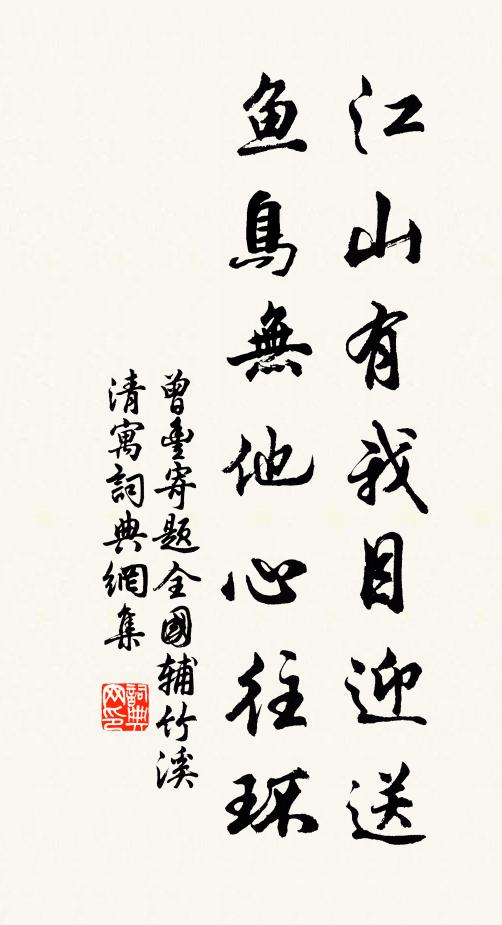 江山有我目迎送
鱼鳥無他心往环
曾豐寄題全國辅竹溪
清寓詞典網集
詞典
网印